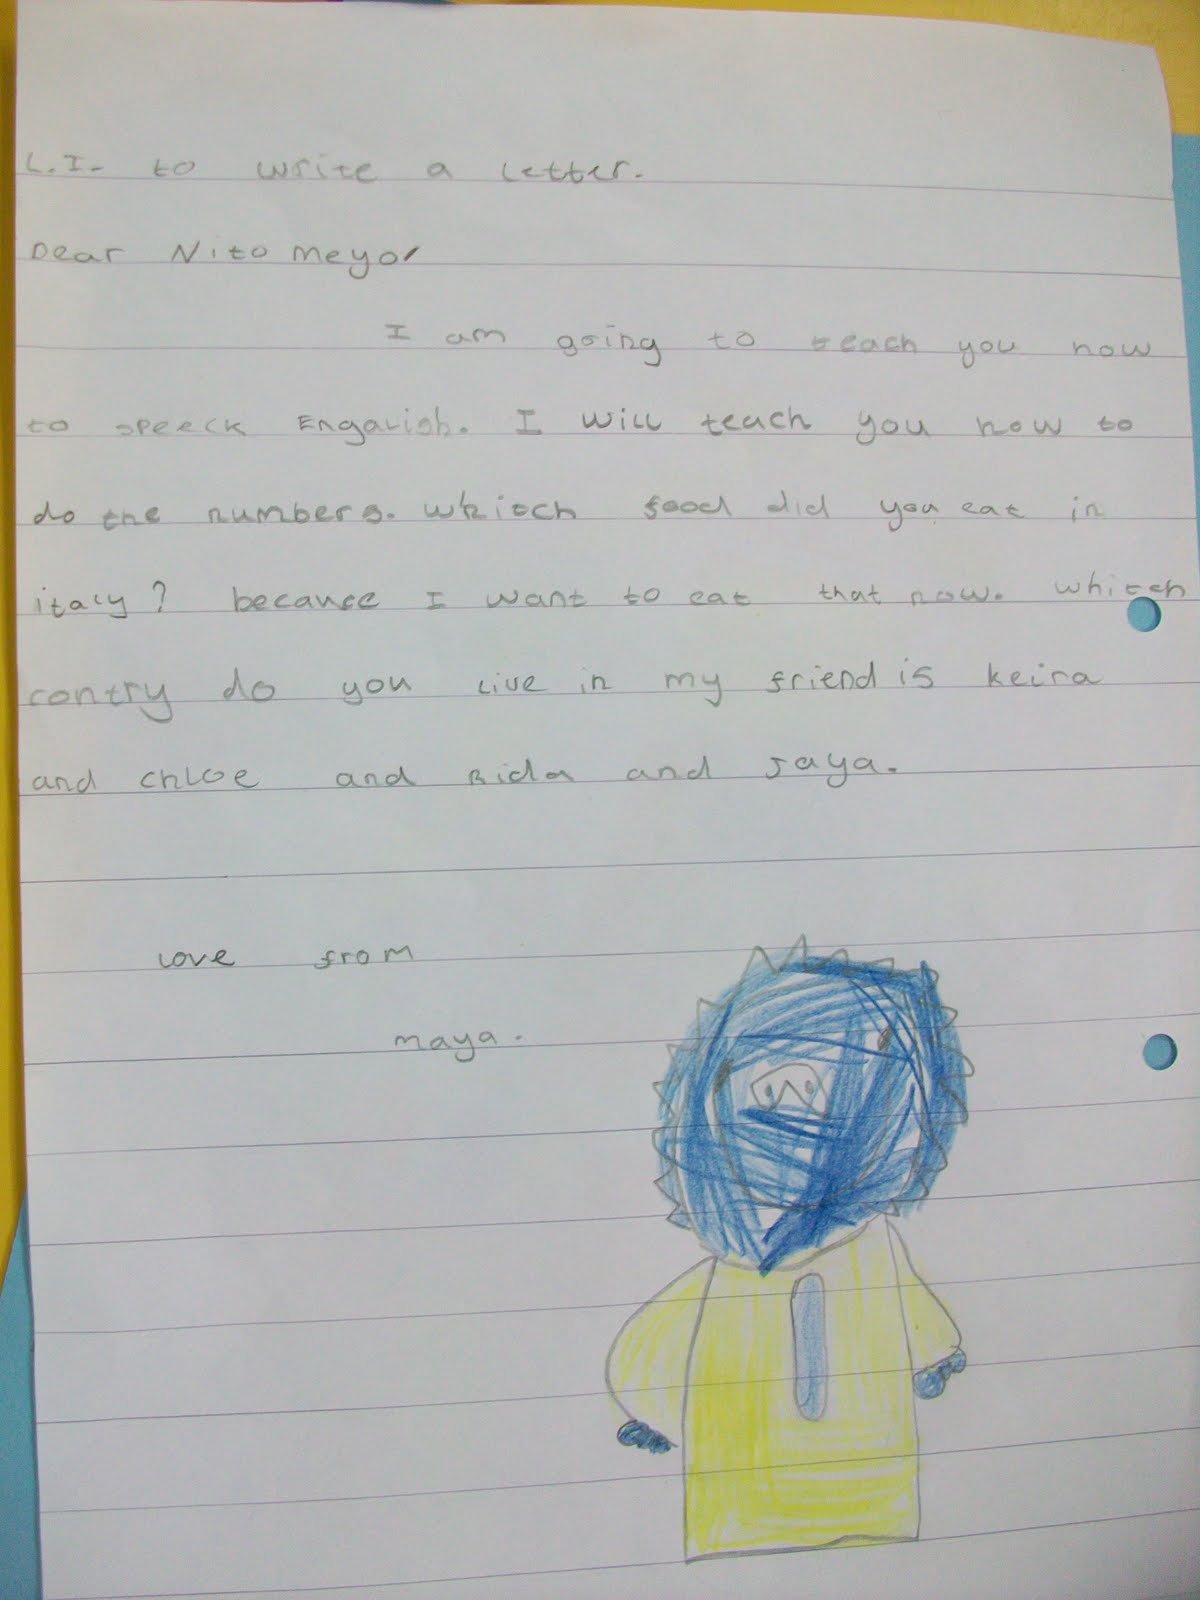 L.I. to write a letter.
Dear Nito Meyor
I am going to teach you how
to speeck Engalish. I will teach you how to
do the numbers. whitch food did you eat in
italy? because I want to eat that now. whitch
contry do you live in my friend is keira
and chloe and Rida and Jaya.
love from
maya.